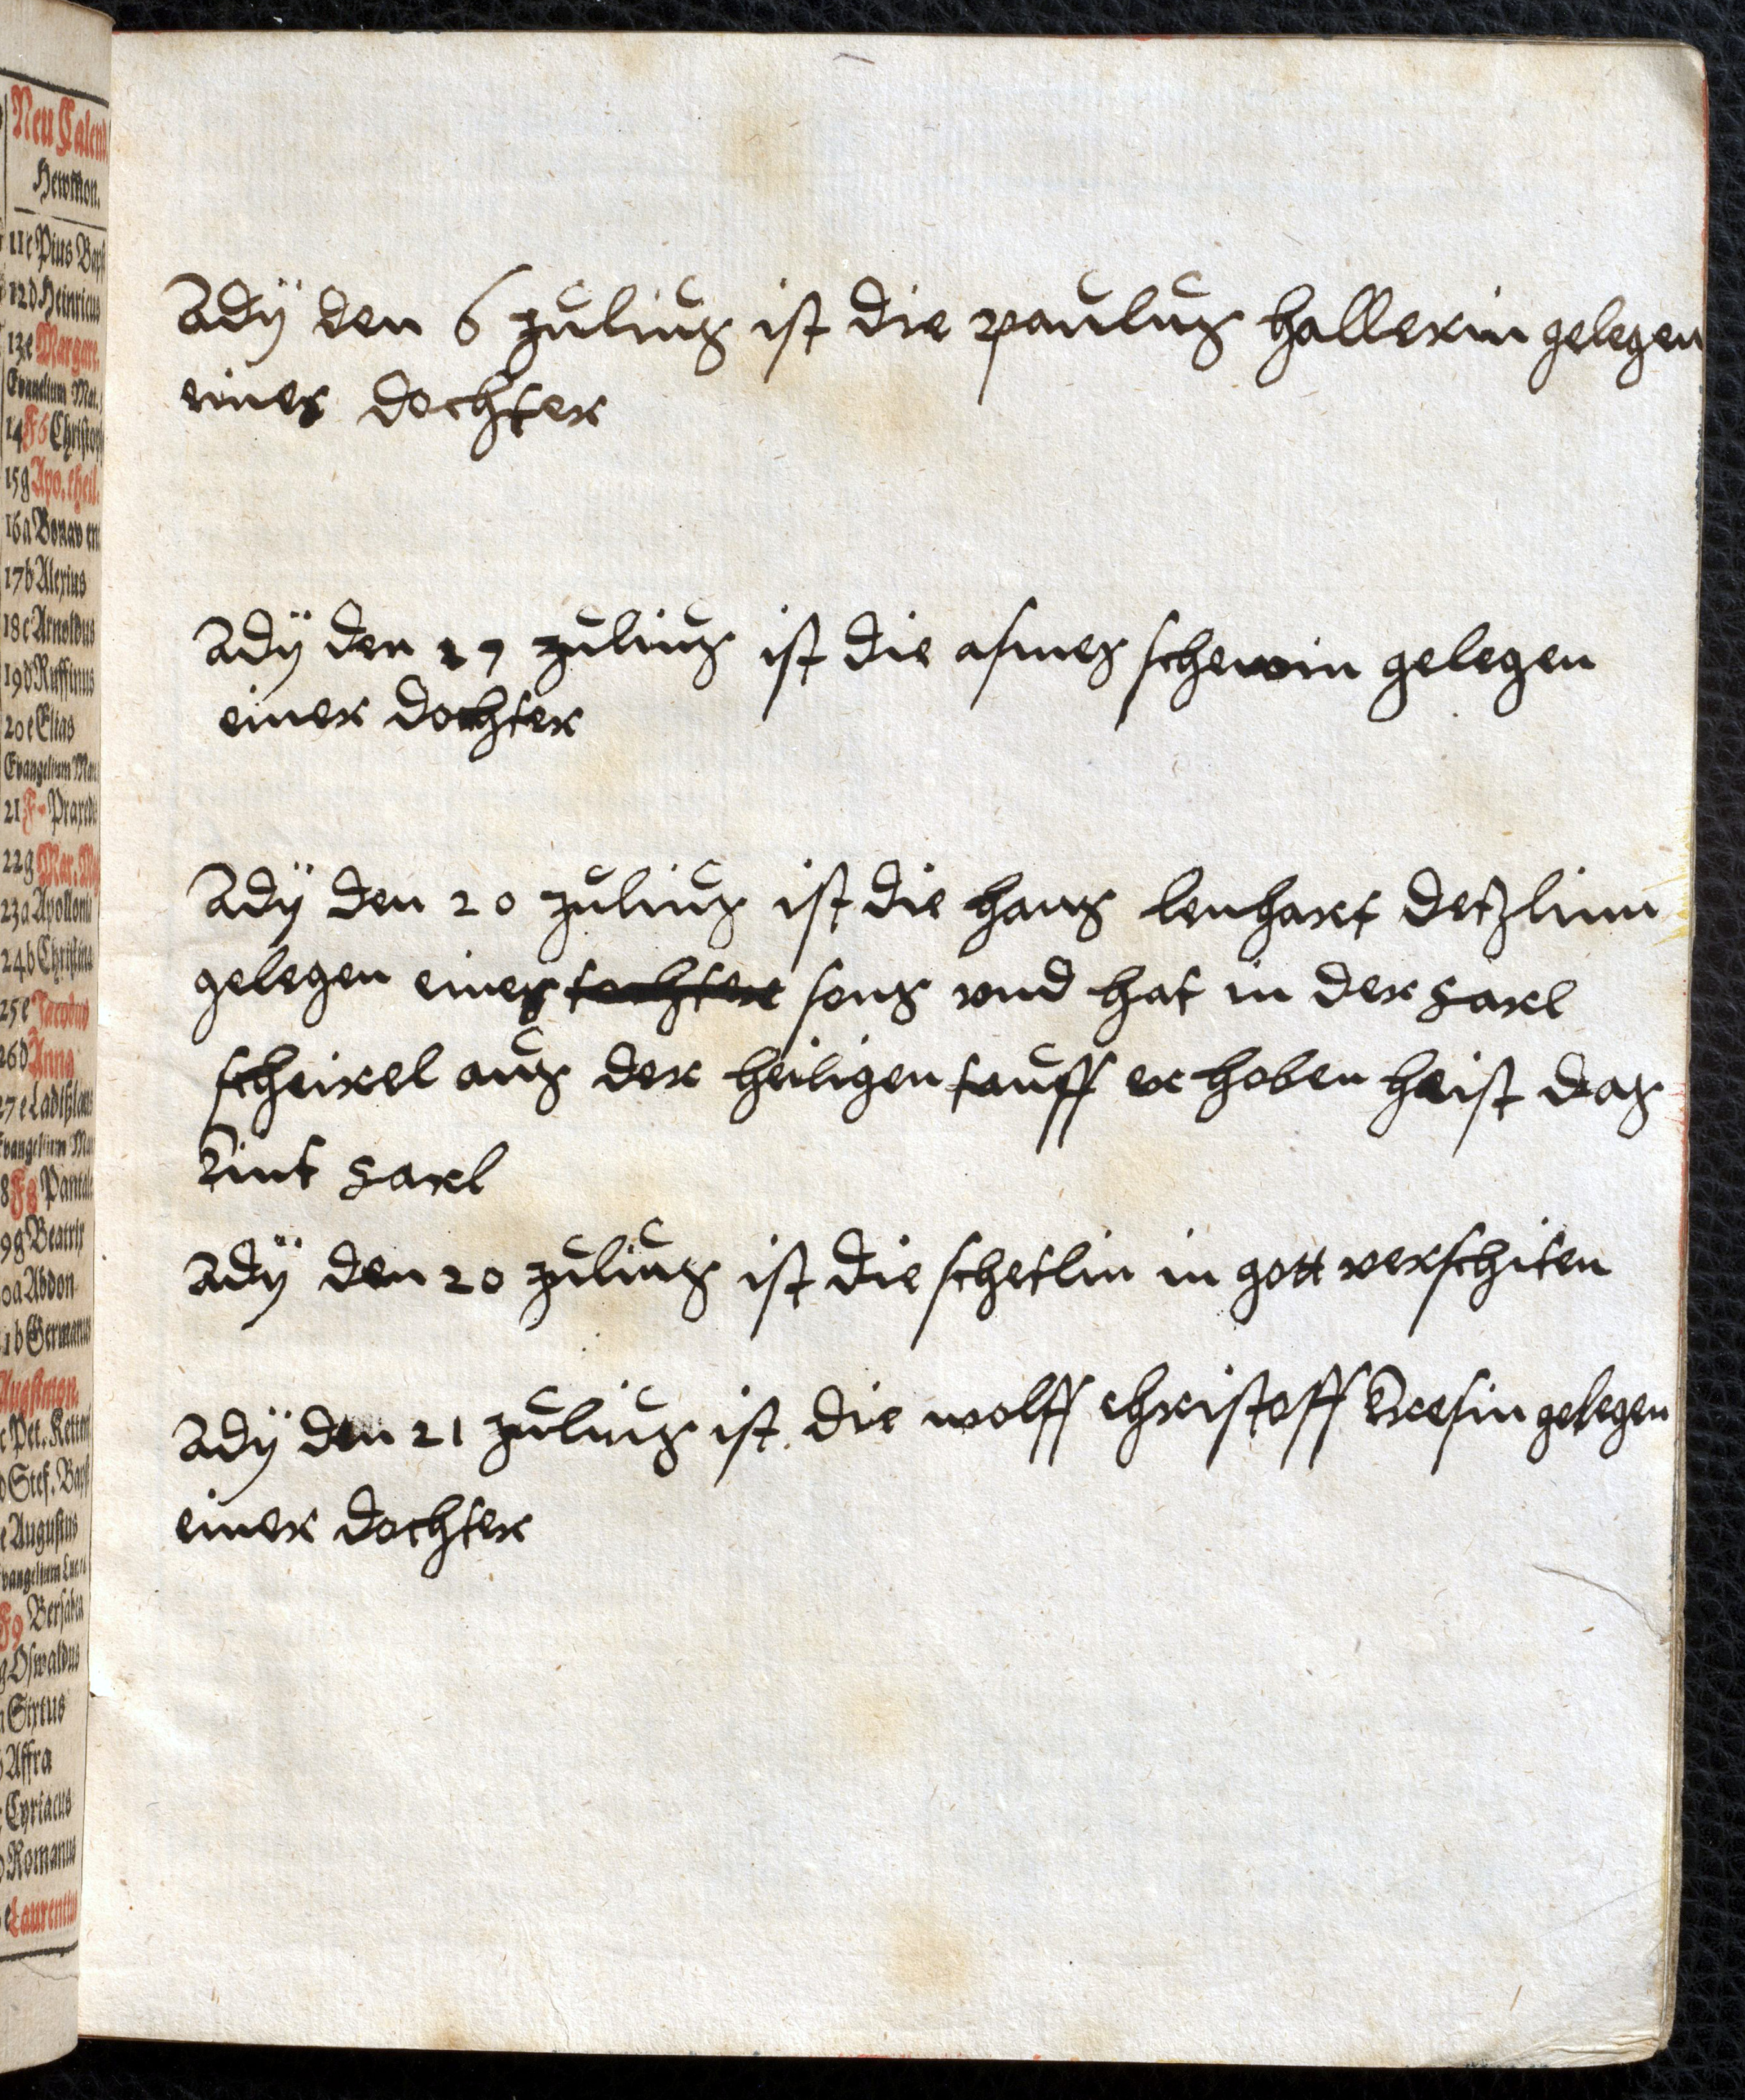 Neu Calend
Hewmon.
11c Pius Bapst
12d Heinricus
13e Margare.
Evangelium Mat.
14 F6 Christoph
15g Apo. theil.
16a Bonav ent
17b Alexius
18c Arnoldus
19d Ruffinus
20e Elias
Evangelium Mar
21 F Praxedis
22g Mar. Mag
23a Apollonia
24b Christina
25c Jacobus
26d Anna
27e Ladißlaus
Evangelium Mat
8 F8 Pantal
9g Beatrix
0a Abdon
1b Germanus
Augstmon.
c Pet. Kettenf
d Stef. Bapst
e Augustus
vangelium Luc.
F9 Bersabea
g Oswaldus
a Sixtus
b Affra
c Cyriacus
d Romanus
e Laurentius
Adÿ den 6 Julius ist die paulus hallerin gelegen
einer dochter
Adÿ den 17 Julius ist die asmes schewin gelegen
einer dochter
Adÿ den 20 Julius ist die hans lenhart detzlinn
gelegen eines tochter sons vnd hat in der Carl
scheirel aus der heiligen tauff er hoben heist das
Kint Carl
Adÿ den 20 Julius ist die schetlin in gott verschiten
Adÿ den 21 Julius ist die wolff christoff Kresin gelegen
einer dochter